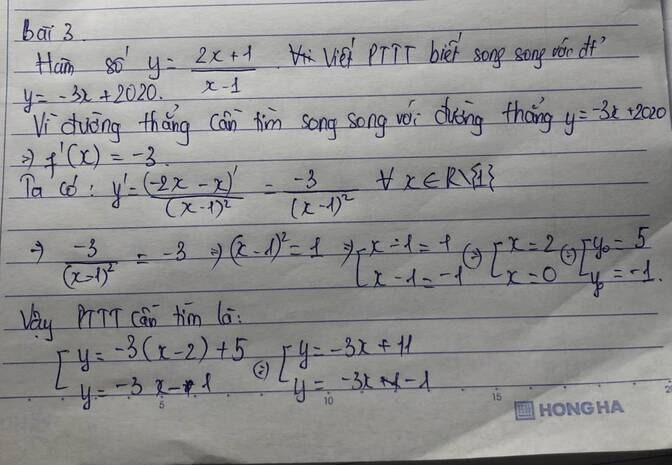 Bài 3.
Hàm số y = (2x+1)/(x-1). Viết PTTT biết song song với đt
y = -3x + 2020.
Vì đường thẳng cần tìm song song với đường thẳng y = -3x + 2020
⇒ f'(x) = -3.
Ta có: y' = (-2x - x)'/(x-1)² = -3/(x-1)² ∀ x ∈ R\{1}
⇒ -3/(x-1)² = -3 ⇒ (x-1)² = 1 ⇒ [x-1=1 [x-1=-1 ⇔ [x=2 [x=0 ⇔ [y₀=5 [y₀=-1.
Vậy PTTT cần tìm là:
[y = -3(x-2)+5 ⇔ [y = -3x+11
[y = -3x-1 [y = -3x-1
5 10 15 20
HONG HA